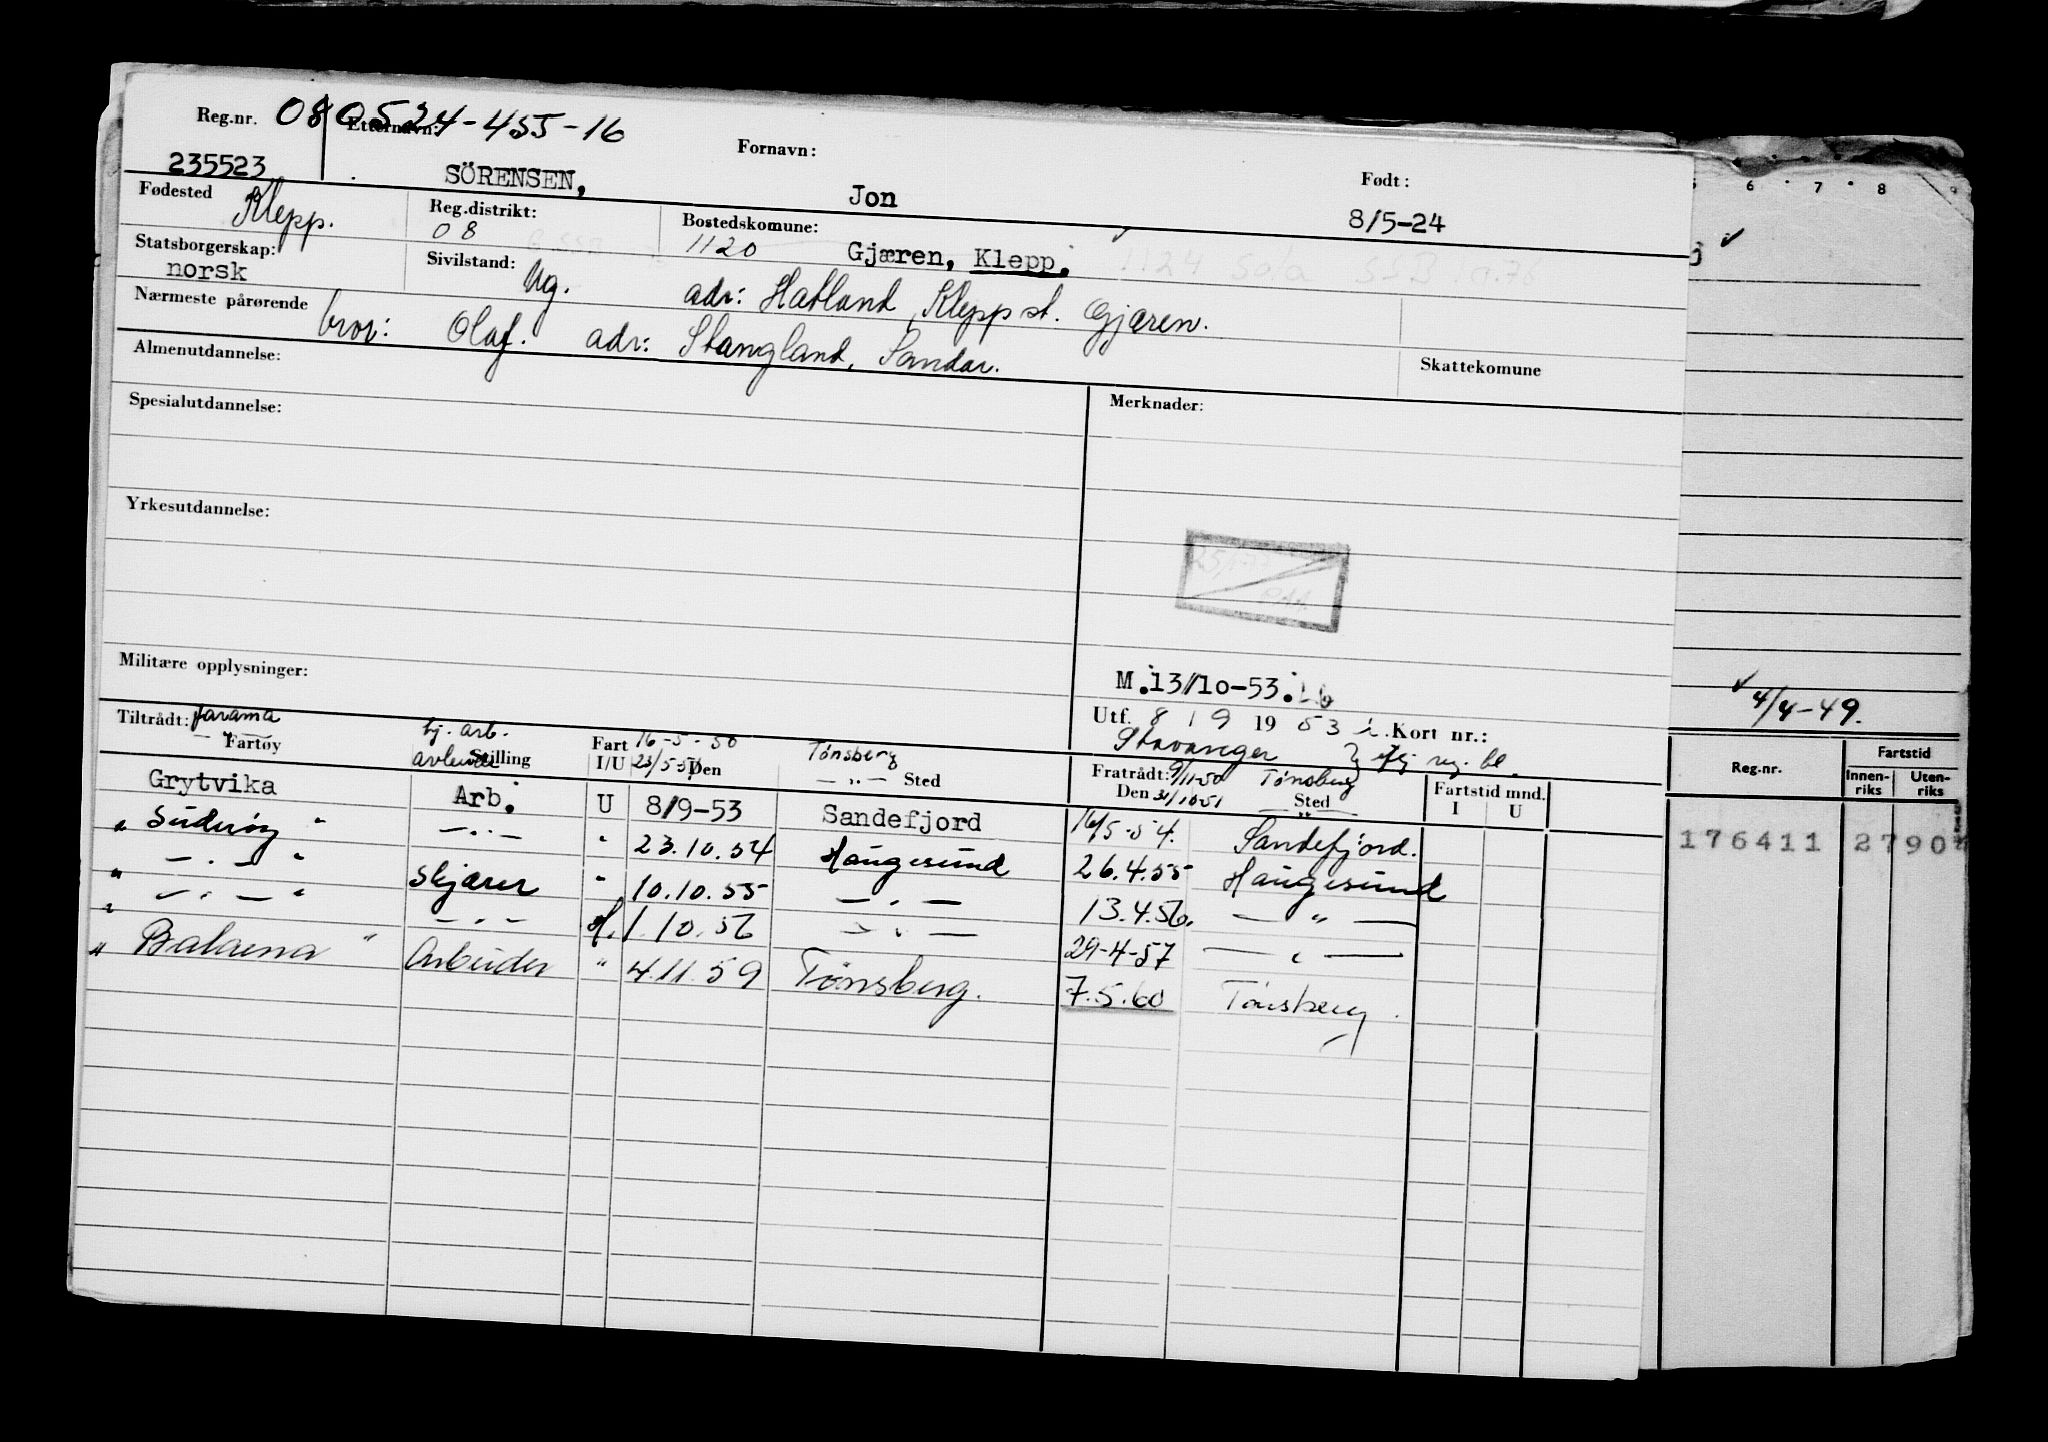 Reg.nr. 080524-455-16
235523
Etternavn:
SÖRENSEN,
Fornavn:
Jon
Født:
8/5-24
Fødested Klepp.
Reg.distrikt:
08
Bostedskomune:
1120 Gjæren, Klepp.
Statsborgerskap:
norsk
Sivilstand: Ug.
adr: Hatland, Klepp st. Gjæren.
Nærmeste pårørende bror: Olaf. adr: Stangland, Sandar.
Skattekomune
Almenutdannelse:
Spesialutdannelse:
Merknader:
Yrkesutdannelse:
Militære opplysninger:
M.13/10-53.
Utf. 8 / 9 19 53 i. Kort nr.:
Stavanger efj reg. bl.
Tiltrådt: Jarama hj. arb. 16-5-50 Tønsberg Fratrådt: 9/11-50 Tønsberg
Fartøy Stilling Fart I/U Den Sted Den 31/10-51 Sted Fartstid mnd. I U
Grytvika Arb. U 8/9-53 Sandefjord 16/5-54. Sandefjord.
" Suderøy " — " — " 23.10.54 Haugesund 26.4.55 Haugesund
" — " — " Skjærer " 10.10.55 — " — 13.4.56. — " —
" — " — " — " — 1.10.56 — " — 29-4-57 — " —
" Balaena " Arbeider " 4.11.59 Tønsberg. 7.5.60 Tønsberg
6 7 8 9
4/4-49.
Reg.nr.
Fartstid
Innen-riks Uten-riks
176411 2790